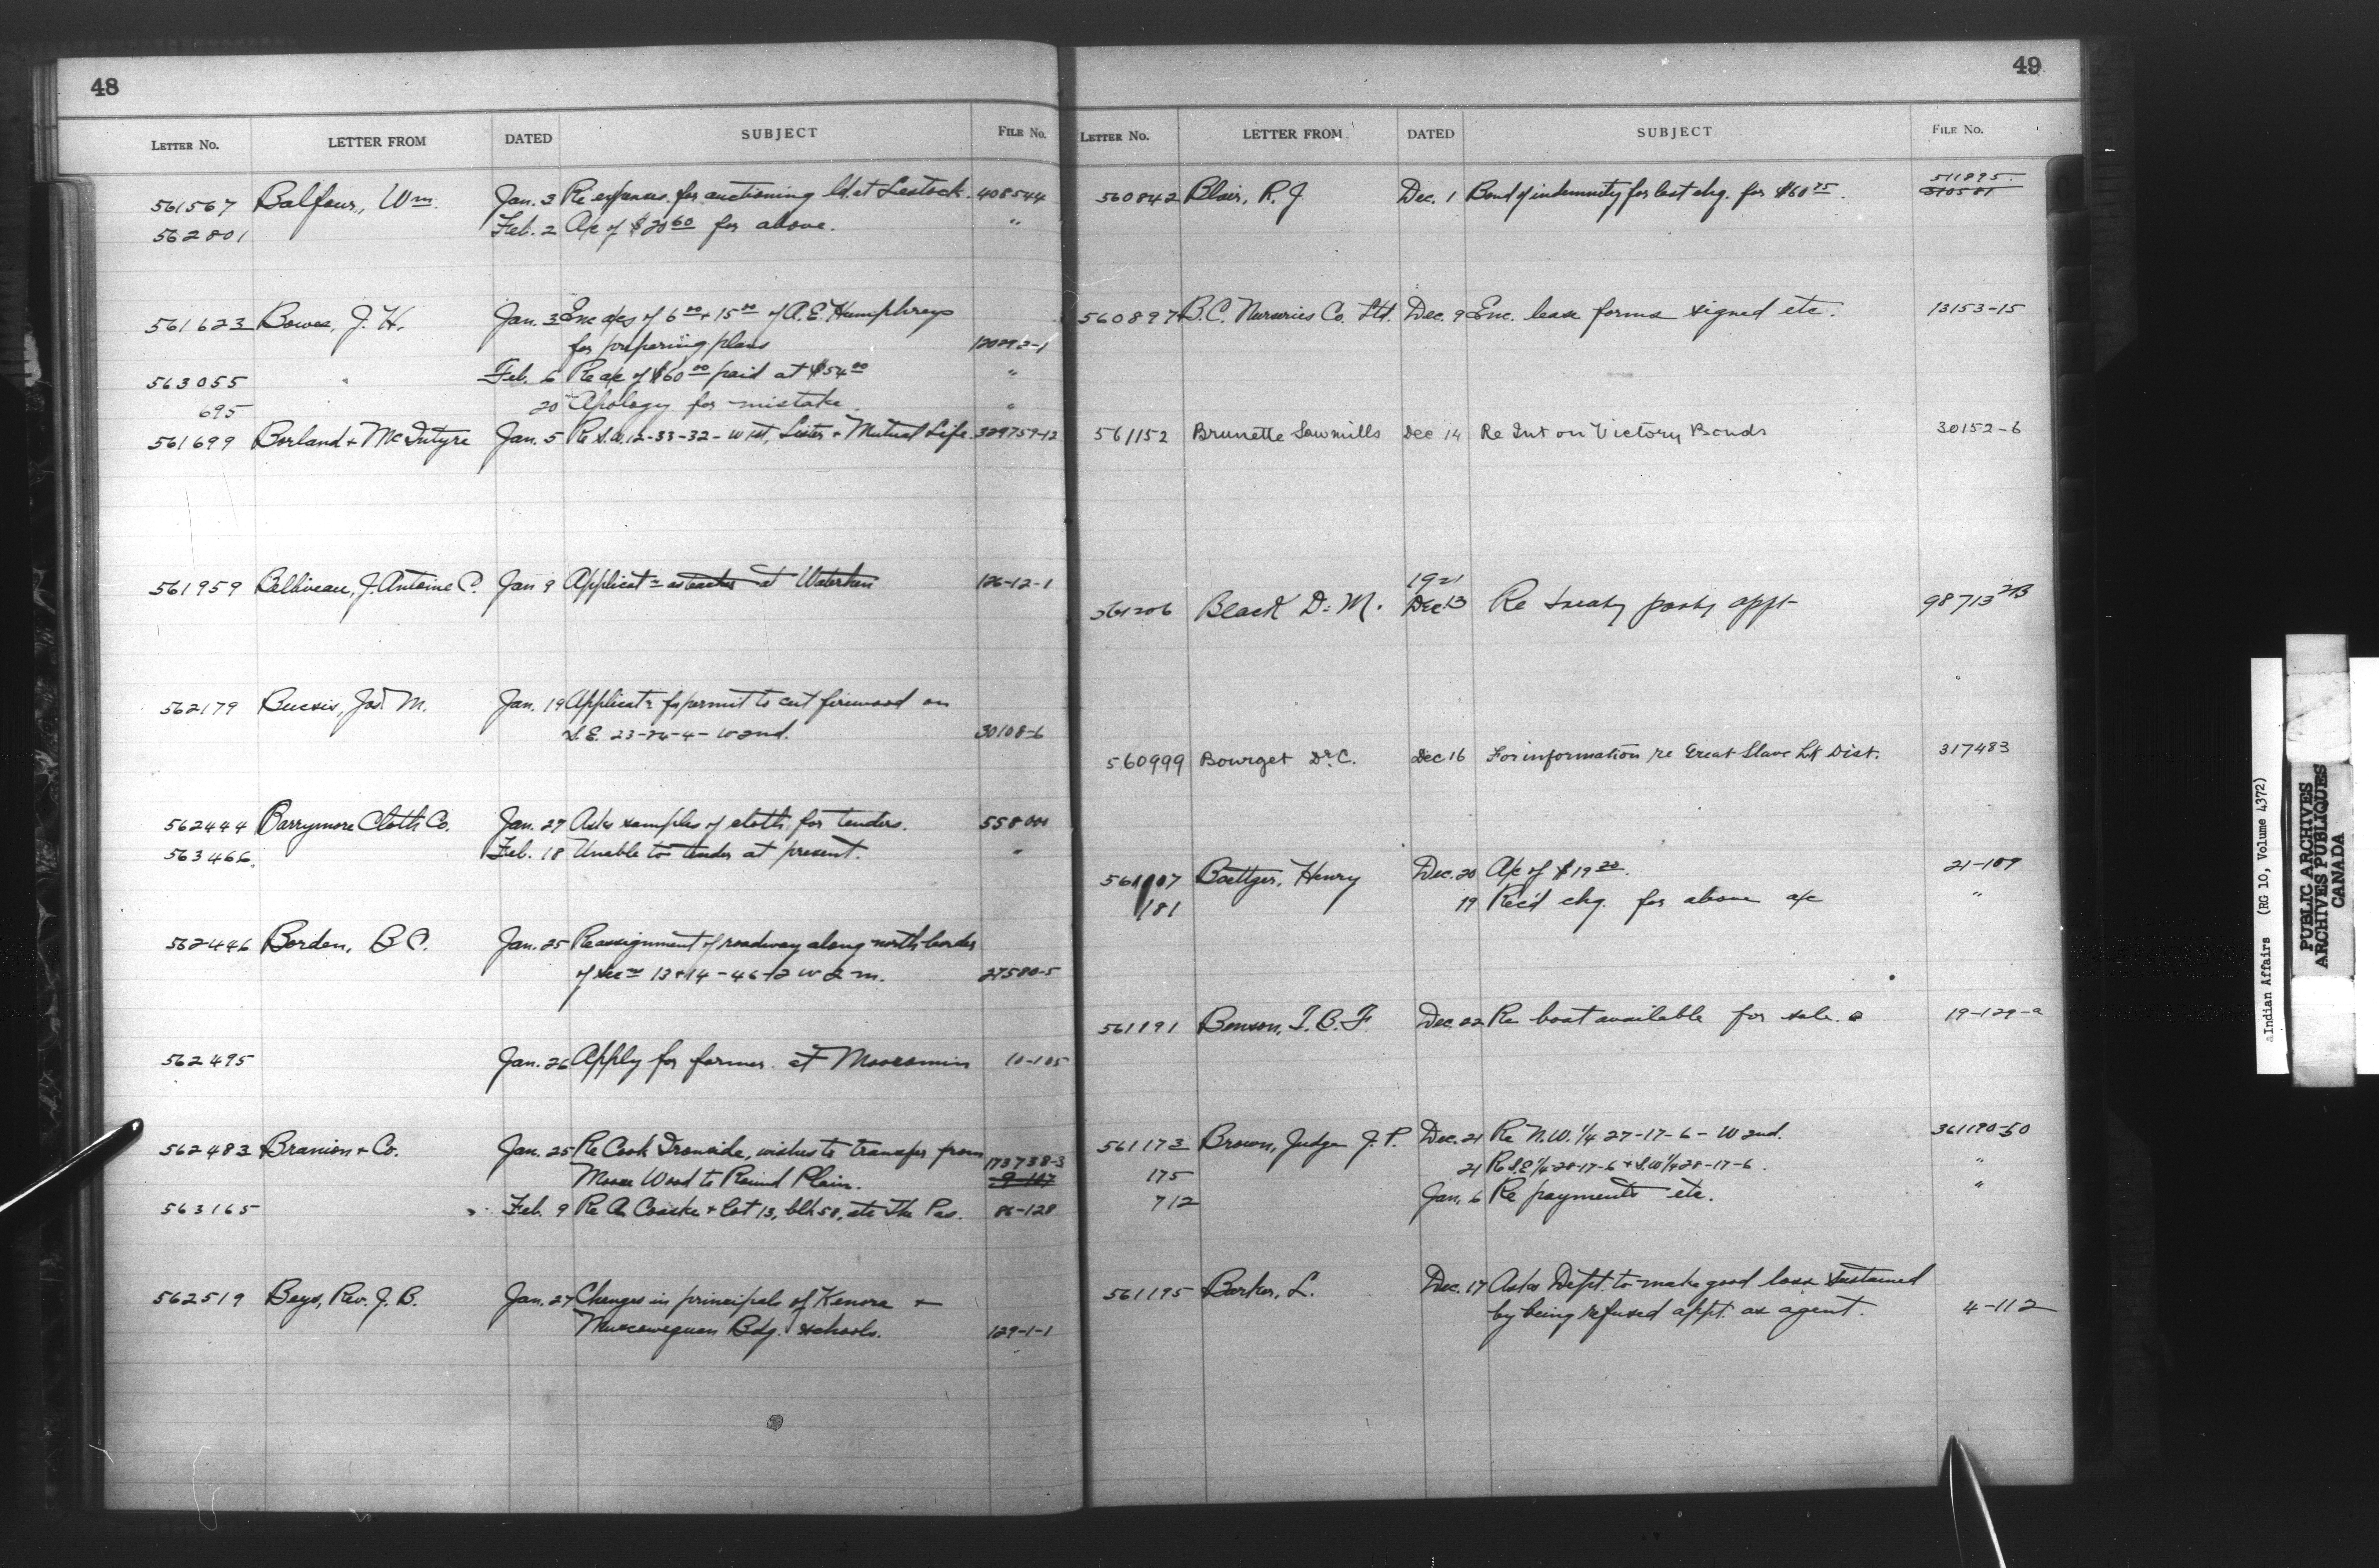 48
LETTER No. LETTER FROM DATED SUBJECT FILE No.
561567 Balfour, Wm. Jan. 3 Re expenses for auctioning ld. at Lestock. 408544
562801 Feb. 2 A/c of $20.60 for above. "
561623 Bowes, J. H. Jan. 3 Enc a/cs of 6.00 + 15.00 of A. E. Humphreys
for preparing plans
563055 " Feb. 6 Re a/c of $60.00 paid at $54.00 "
695 20 Apology for mistake. "
561699 Borland + McIntyre Jan. 5 Re 12-33-32-W1st, Lister + Mutual Life.
561959 Belliveau, J. Antoine C. Jan 9 Applicatn as teacher at Waterhen 126-12-1
562179 Jas. M. Jan. 19 Applicatn for permit to cut firewood on
S.E. 23-24-4-W2nd. 30108-6
562444 Barrymore Cloth Co. Jan. 27 Asks samples of cloth for tenders.
563466. Feb. 18 Unable to tender at present. "
562446 Borden, B C. Jan. 25 Re assignment of roadway along north border
of secns 13+14-46-2 W 2 m. 27580-5
562495 Jan. 26 Apply for farmer at Moosomin 10-105
562483 Branion + Co. Jan. 25 Re Cook Ironside, wishes to transfer from 173738-3
Moose Wood to Round Plain. 9-117
563165 Feb. 9 Re A. + Lot 13, blk 58, etc The Pas. 86-128
562519 Beys, Rev. J. B. Jan. 27 Changes in principals of Kenora +
Muscowequan Bdg. schools. 129-1-1
49
LETTER No. LETTER FROM DATED SUBJECT FILE No.
511895.
560842 Blair, R. J. Dec. 1 Bond of indemnity for lost chq. for $60.75. 510501
560897 B.C. Nurseries Co. Ltd. Dec. 9 Enc. lease forms signed etc. 13153-15
561152 Brunette Sawmills Dec 14 Re Int on Victory Bonds 30152-6
1921
561206 Black D. M. Dec 13 Re treaty party appt 98713
560999 Bourget Dr. C. Dec 16 For information re Great Slave Lk Dist. 317483
561107 Boettger, Henry Dec. 20 A/c of $19.20. 21-109
181 19 Rec'd chq. for above a/c "
561191 Benson, I. B. F. Dec. 22 Re boat available for sale. 19-129-2
561173 Brown, Judge J. T. Dec. 21 Re N.W. 1/4 27-17-6-W 2nd. 361190-50
175 21 Re S.E 1/4-28-17-6 + S.W 1/4 28-17-6. "
712 Jan. 6 Re payments etc. "
561195 Barker, L. Dec. 17 Asks Dept. to make good loss sustained
by being refused appt. as agent. 4-112
Indian Affairs (RG 10, Volume 4372)
PUBLIC ARCHIVES
ARCHIVES PUBLIQUES
CANADA